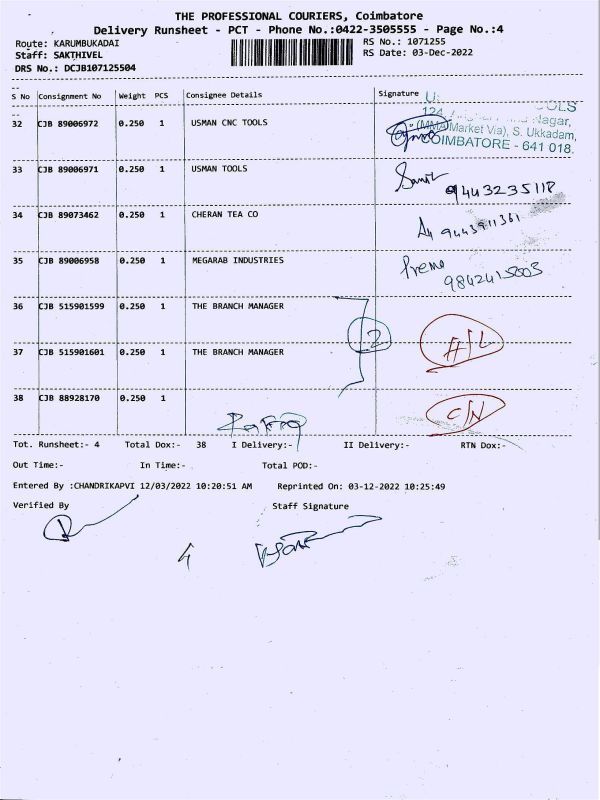 THE PROFESSIONAL COURIERS, Coimbatore
Delivery Runsheet - PCT - Phone No.:0422-3505555 - Page No.:4
Route: KARUMBUKADAI RS No.: 1071255
Staff: SAKTHIVEL RS Date: 03-Dec-2022
DRS No.: DCJB107125504
S No Consignment No Weight PCS Consignee Details Signature
32 CJB 89006972 0.250 1 USMAN CNC TOOLS
U: OLS
124, Nagar,
(MMA Market Via), S. Ukkadam,
COIMBATORE - 641 018.
33 CJB 89006971 0.250 1 USMAN TOOLS
9443235118
34 CJB 89073462 0.250 1 CHERAN TEA CO
9443911361
35 CJB 89006958 0.250 1 MEGARAB INDUSTRIES Prema
36 CJB 515901599 0.250 1 THE BRANCH MANAGER
2 H/L
37 CJB 515901601 0.250 1 THE BRANCH MANAGER
38 CJB 88928170 0.250 1 C/N
Tot. Runsheet:- 4 Total Dox:- 38 I Delivery:- II Delivery:- RTN Dox:-
Out Time:- In Time:- Total POD:-
Entered By :CHANDRIKAPVI 12/03/2022 10:20:51 AM Reprinted On: 03-12-2022 10:25:49
Verified By Staff Signature
4